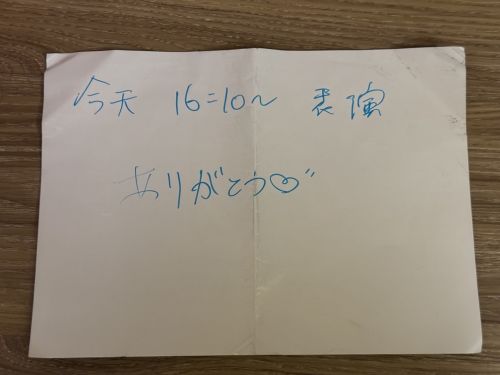 今天 16:10~ 表演
ありがとう♡